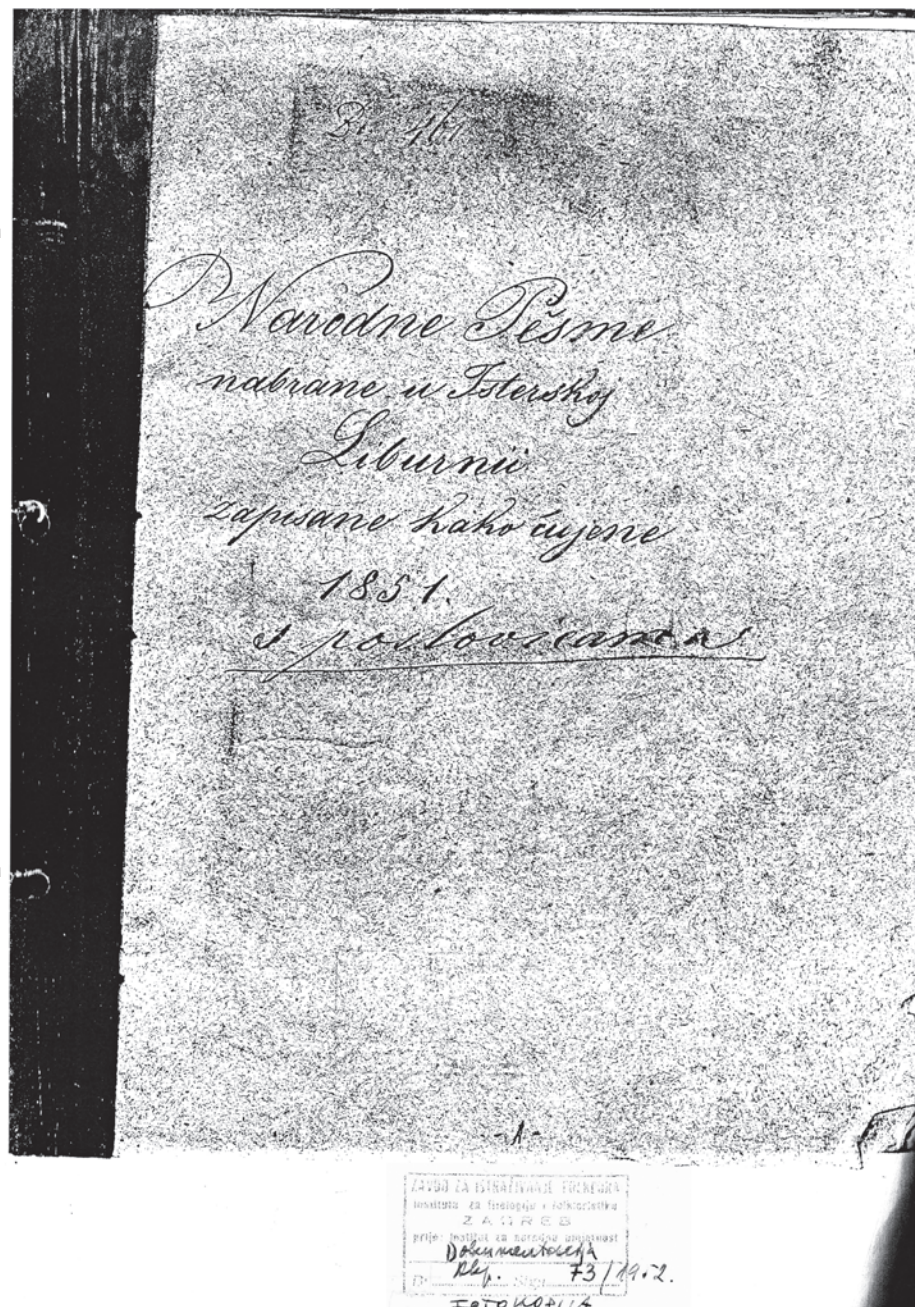 Br 161
Narodne Pěsme
nabrane u Isterskoj
Liburnii
zapisane kako čujene
1851.
s poslovicama
-1-
ZAVOD ZA ISTRAŽIVANJE FOLKLORA
Instituta za filologiju i folkloristiku
ZAGREB
prije: Institut za narodnu umjetnost
Dokumentacija
Rkp. 73/1952.
FOTOKOPIJA